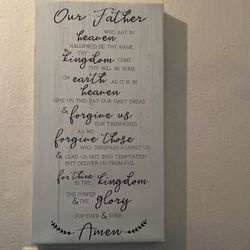 Our Father
WHO ART IN
heaven
HALLOWED BE THY NAME
THY
kingdom COME
THY WILL BE DONE
ON earth AS IT IS IN
heaven
GIVE US THIS DAY OUR DAILY BREAD
& forgive us
OUR TRESPASSES
AS WE
forgive those
WHO TRESPASS AGAINST US
& LEAD US NOT INTO TEMPTATION
BUT DELIVER US FROM EVIL
for thine IS THE kingdom
THE POWER
& THE glory
FOR EVER & EVER
Amen